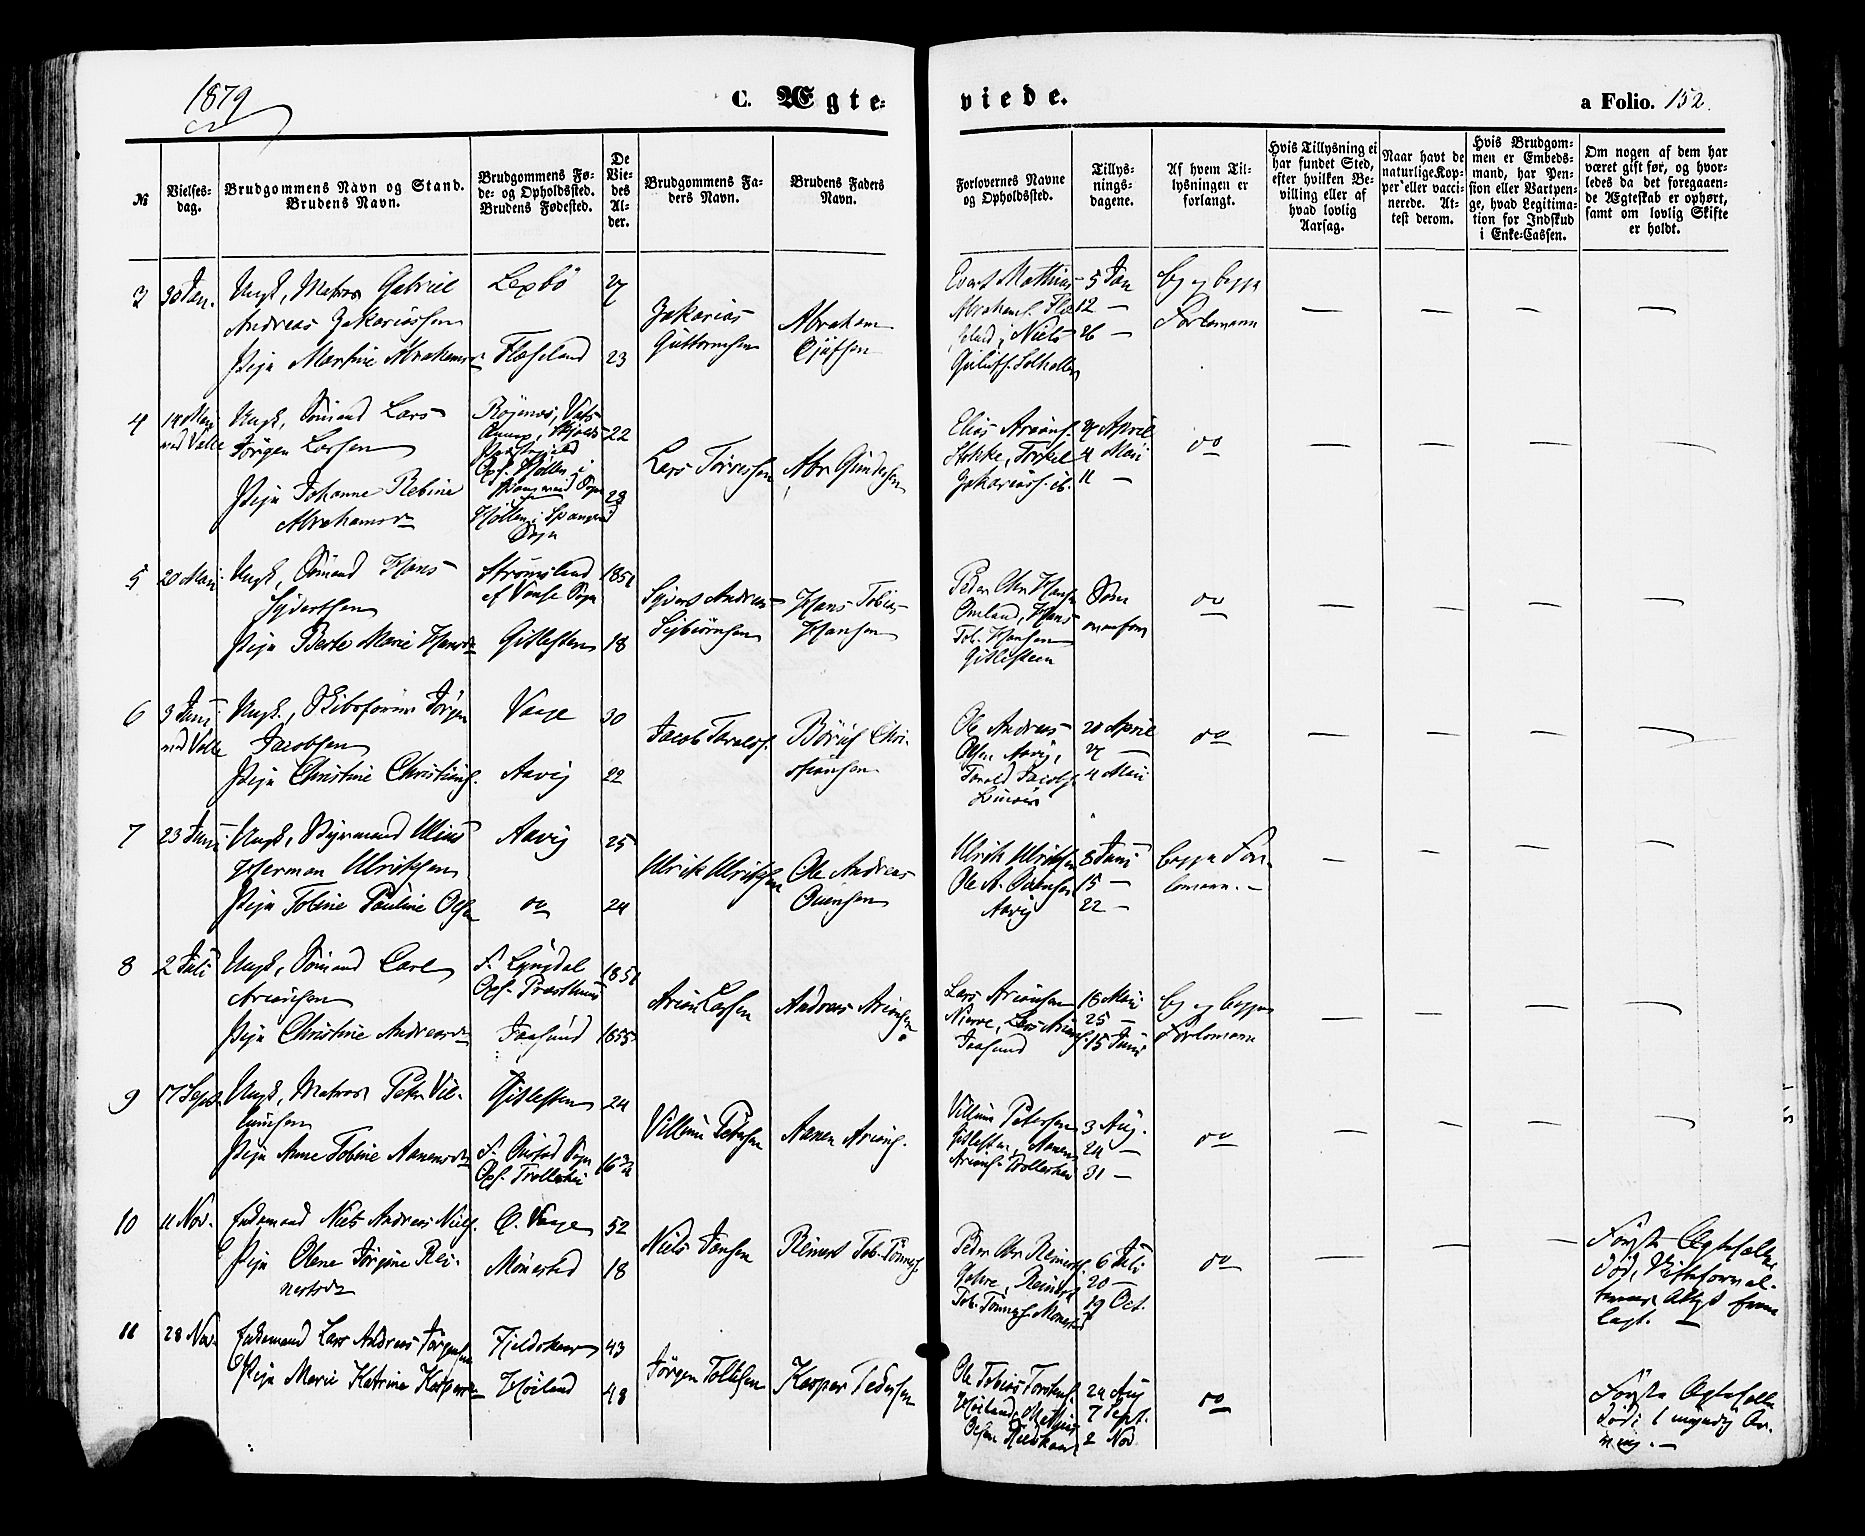 1879
C. Ægte-
viede.
a Folio. 152.
№
Vielses-
dag.
Brudgommens Navn og Stand.
Brudens Navn.
Brudgommens Fø-
de- og Opholdssted.
Brudens Fødested.
De
Vie-
des
Al-
der.
Brudgommens Fa-
ders Navn.
Brudens Faders
Navn.
Forlovernes Navne
og Opholdssted.
Tillys-
nings-
dagene.
Af hvem Til-
lysningen er
forlangt.
Hvis Tillysning ei
har fundet Sted,
efter hvilken Be-
villing eller af
hvad lovlig
Aarsag.
Naar havt de
naturlige Kop-
per eller vacci-
nerede. At-
test derom.
Hvis Brudgom-
men er Embeds-
mand, har Pen-
sion eller Vartpen-
ge, hvad Legitima-
tion for Indskud
i Enke-Cassen.
Om nogen af dem har
været gift før, og hvor-
ledes da det foregaaen-
de Ægteskab er ophørt,
samt om lovlig Skifte
er holdt.
3
30 Jan.
Ungk, Matros Gabriel
Andreas Zakariassen
Pige Martine Abrahamsd
Flæseland
27
23
Zakarias
Guttormsen
Abraham
Evert Mathias
Abrahams. Flæ-
seland, Niels
5 Jan
12 —
26 —
og begge
Forlovere
4
14 Mai
ved Valle
Ungk, Sømand Lars
Jørgen Larsen
Pige Johanne Rebine
Abrahamsd
22
23
Lars Torresen
Abr Gundersen
Elias Ariøns.
Stokke, Torkel
Zakarias. ib.
27 April
4 Mai
11 —
do
5
20 Mai
Ungk, Sømand Hans
Syvertsen
Pige Berte Marie Hansd
Strømsland
af Vanse Sogn
Gitlesten
1851
18
Syvert Andreas
Sigbiørnsen
Hans Tobias
Hansen
Peder Chr Hansen
Omland, Hans
Tob. Hansen
Gitlesteen
Som
ovenfor
do
6
3 Juni
ved Valle
Ungk., Skibsfører Jørgen
Jacobsen
Pige Christine Christians.
Vaage
Aavig
30
22
Jacob Taralds.
Børuf Chri-
stiansen
Ole Andreas
Olsen Aavig,
Tarald Jacobs.
20 April
27 —
4 Mai
do
7
23 Juni
Ungk, Styrmand Ulrik
Herman Ulriksen
Pige Tobine Pauline Olsen
Aavig
do
25
24
Ulrik Ulriksen
Ole Andreas
Ovensen
Ulrik Ulriksen
Ole A. Ovensen
Aavig
8 Juni
15 —
22 —
begge For-
lovere. —
8
2 Juli
Ungk, Sømand Carl
Ariønsen
Pige Christine Andreasd
F. Lyngdal
Oph. Præsthuus
Jaasund
1851
1855
Ariøn Larsen
Andreas Ariønsen
Lars Ariønsen
Nierve, Lars Ariøns.
Jaasund
18 Mai
25 —
15 Juni
og begge
Forlovere
9
17 Sept.
Ungk, Matros Peter Vil-
lumsen
Pige Anne Tobine Aanensd
Gitlesten
F. Oustad Sogn
Oph. Trolleboi
24
16 3/4
Villum Petersen
Aanen Ariøns.
Villum Petersen
Gitlesten, Aanen
Ariøns. Trolleboi
3 Aug.
24 —
31 —
do
10
11 Nov.
Enkemand Niels Andreas Niels.
Pige Olene Jørgine Rei-
nertsd
O. Vaage
Mønested
52
18
Niels Jansen
Reinert Tob. Tønnes.
Peder Chr. Reinerts.
Gaare, Reinert
Tob. Tønnes. Mønested
6 Juli
20 —
19 Oct.
do
Første Ægtefælle
død, Skifteforval-
terens Attest frem-
lagt. —
11
28 Nov.
Enkemand Lars Andreas Jørgensen
Pige Marie Katrine Kaspersd
Fjeldskaar
Høiland
43
48
Jørgen Tollefsen
Kasper Pedersen
Ole Tobias Torstens.
Høiland, Mathias
Olsen Fjeldskaar
24 Aug
7 Sept.
2 Nov.
do
Første Ægtefælle
død; 1 myndig Ar-
ving. —